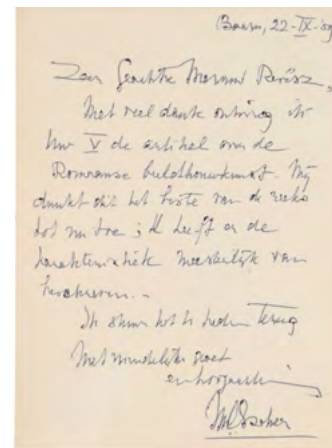 Baarn, 22-IX-'59
Zeer Geachte
Met veel dank ontving ik
Uw V de artikel over de
Romaanse beeldhouwkunst. Mij
dunkt dit het beste van de reeks
tot nu toe; U heeft er de
karakteristiek meesterlijk van
beschreven.
Ik stuur het U heden terug
Met vriendelijke groet
en hoogachting
MCEscher